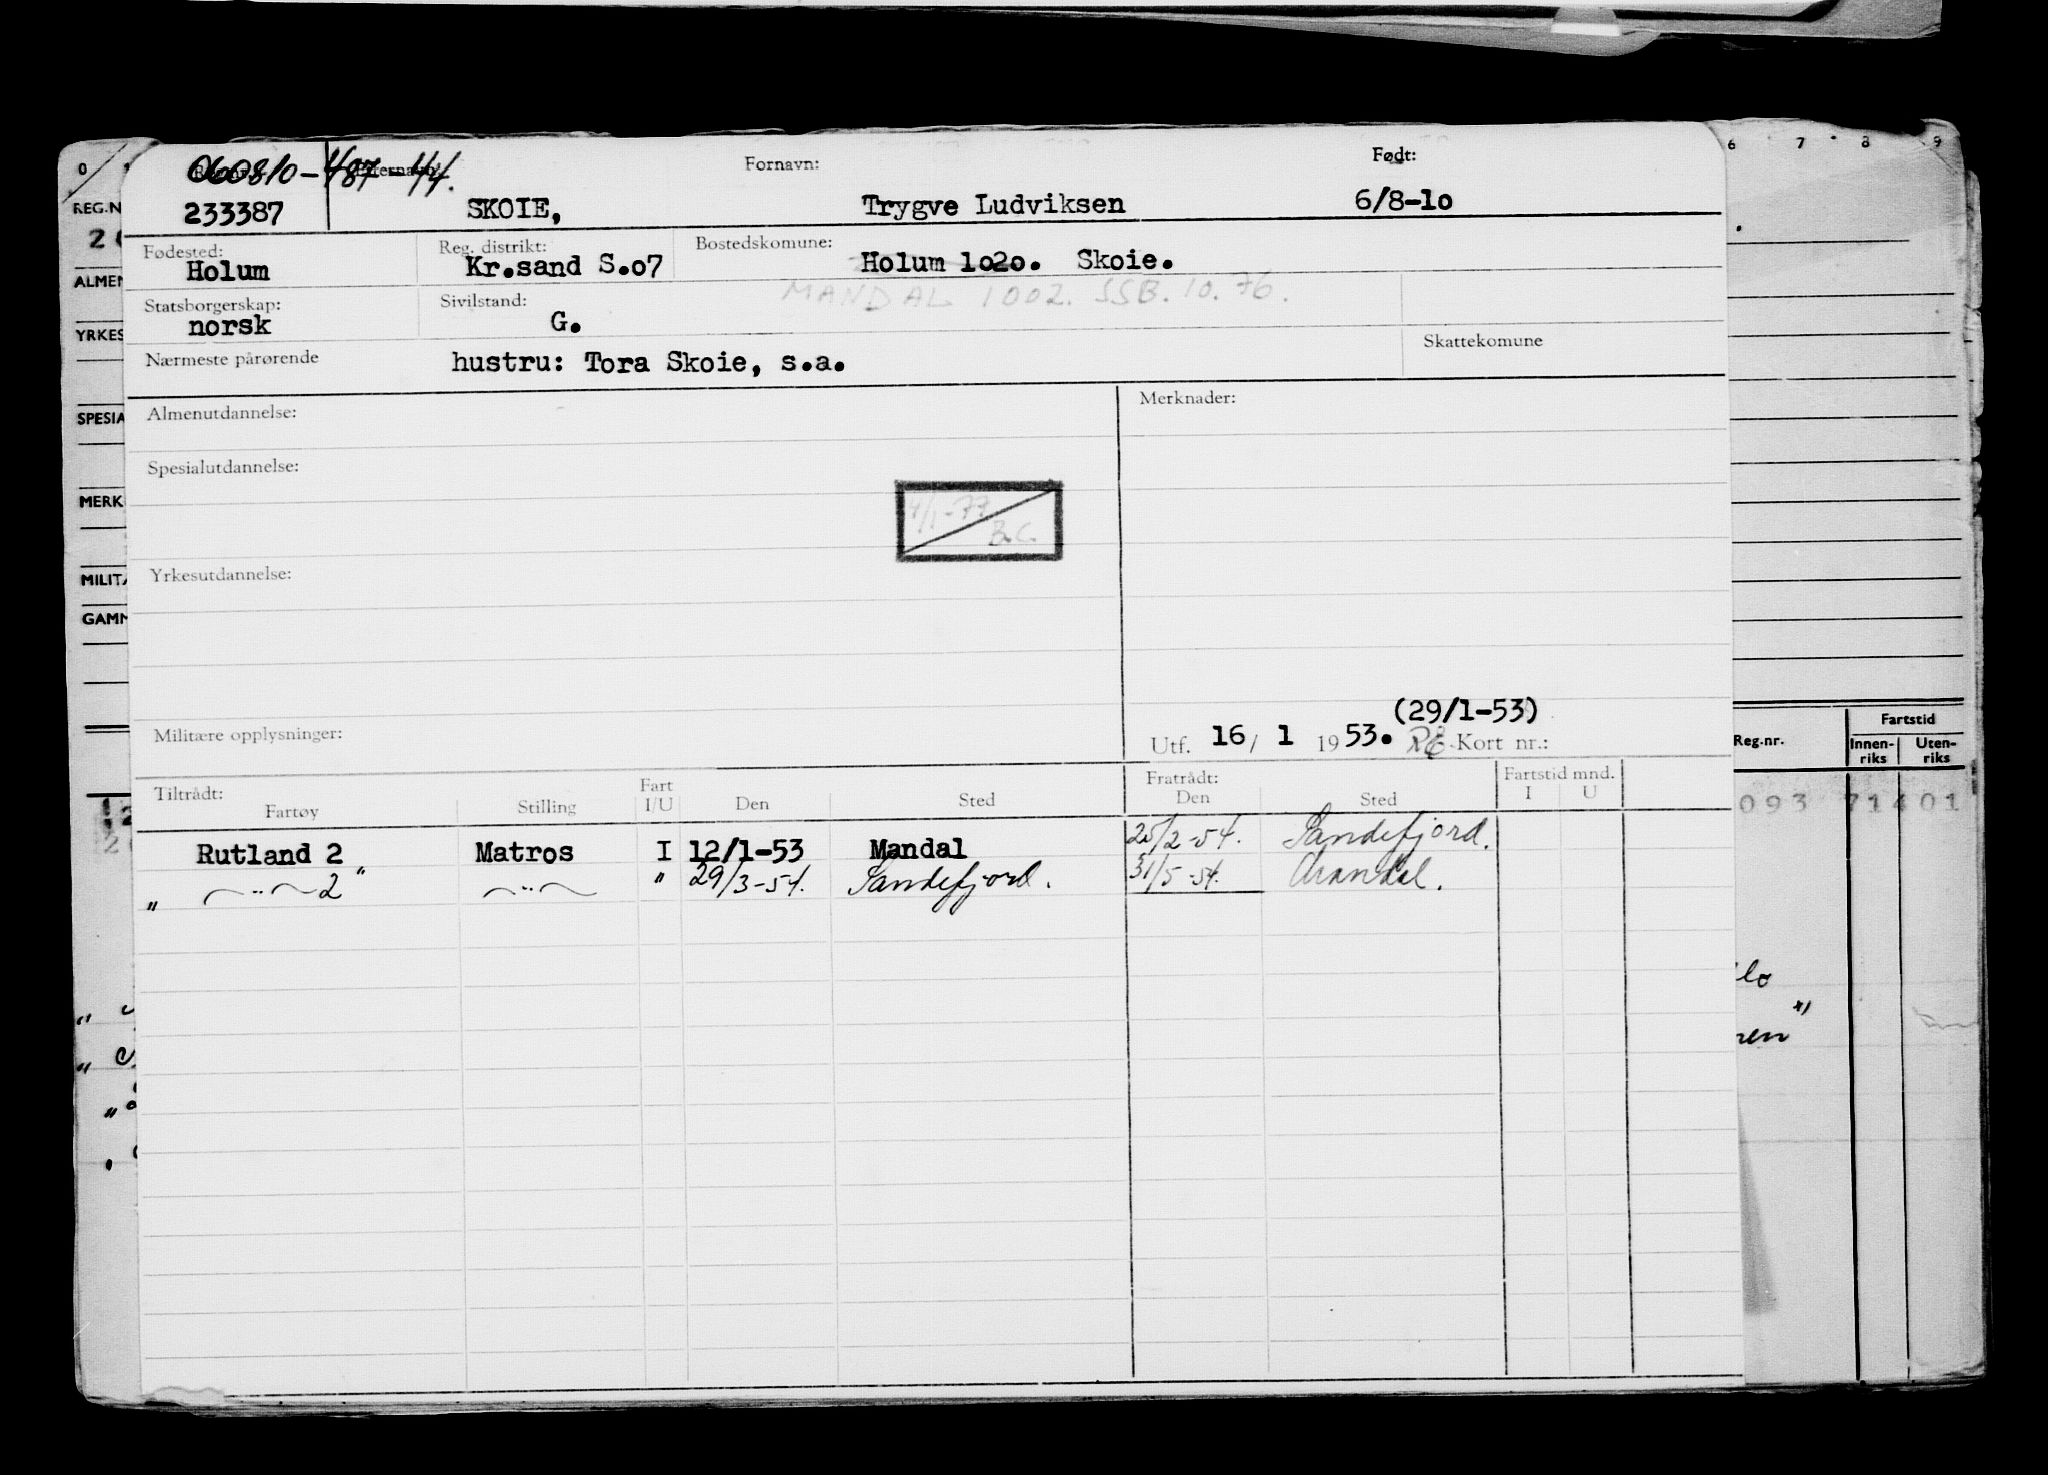 060810-487-44.
Fornavn: Født:
233387 SKOIE, Trygve Ludviksen 6/8-1o
Fødested: Reg. distrikt: Bostedskomune:
Holum Kr.sand S.o7 Holum 1o2o. Skoie.
MANDAL 1002. SSB. 10. 76.
Statsborgerskap: Sivilstand:
norsk G.
Nærmeste pårørende hustru: Tora Skoie, s.a. Skattekomune
Almenutdannelse: Merknader:
Spesialutdannelse:
4/1-77 B.C.
Yrkesutdannelse:
(29/1-53)
Militære opplysninger: Utf. 16/ 1 1953. Kort nr.:
Tiltrådt: Fart Fratrådt: Fartstid mnd.
Fartøy Stilling I/U Den Sted Den Sted I U
Rutland 2 Matros I 12/1-53 Mandal 25/2-54. Sandefjord.
" —"— 2" —"— " 29/3-54. Sandefjord. 31/5-54. Arendal.
0
6 7 8 9
REG.N
2
ALMEN
YRKES
SPESIA
MERK
MILITÆ
GAMM
Reg.nr.
Fartstid
Innen-
riks
Uten-
riks
093 71401